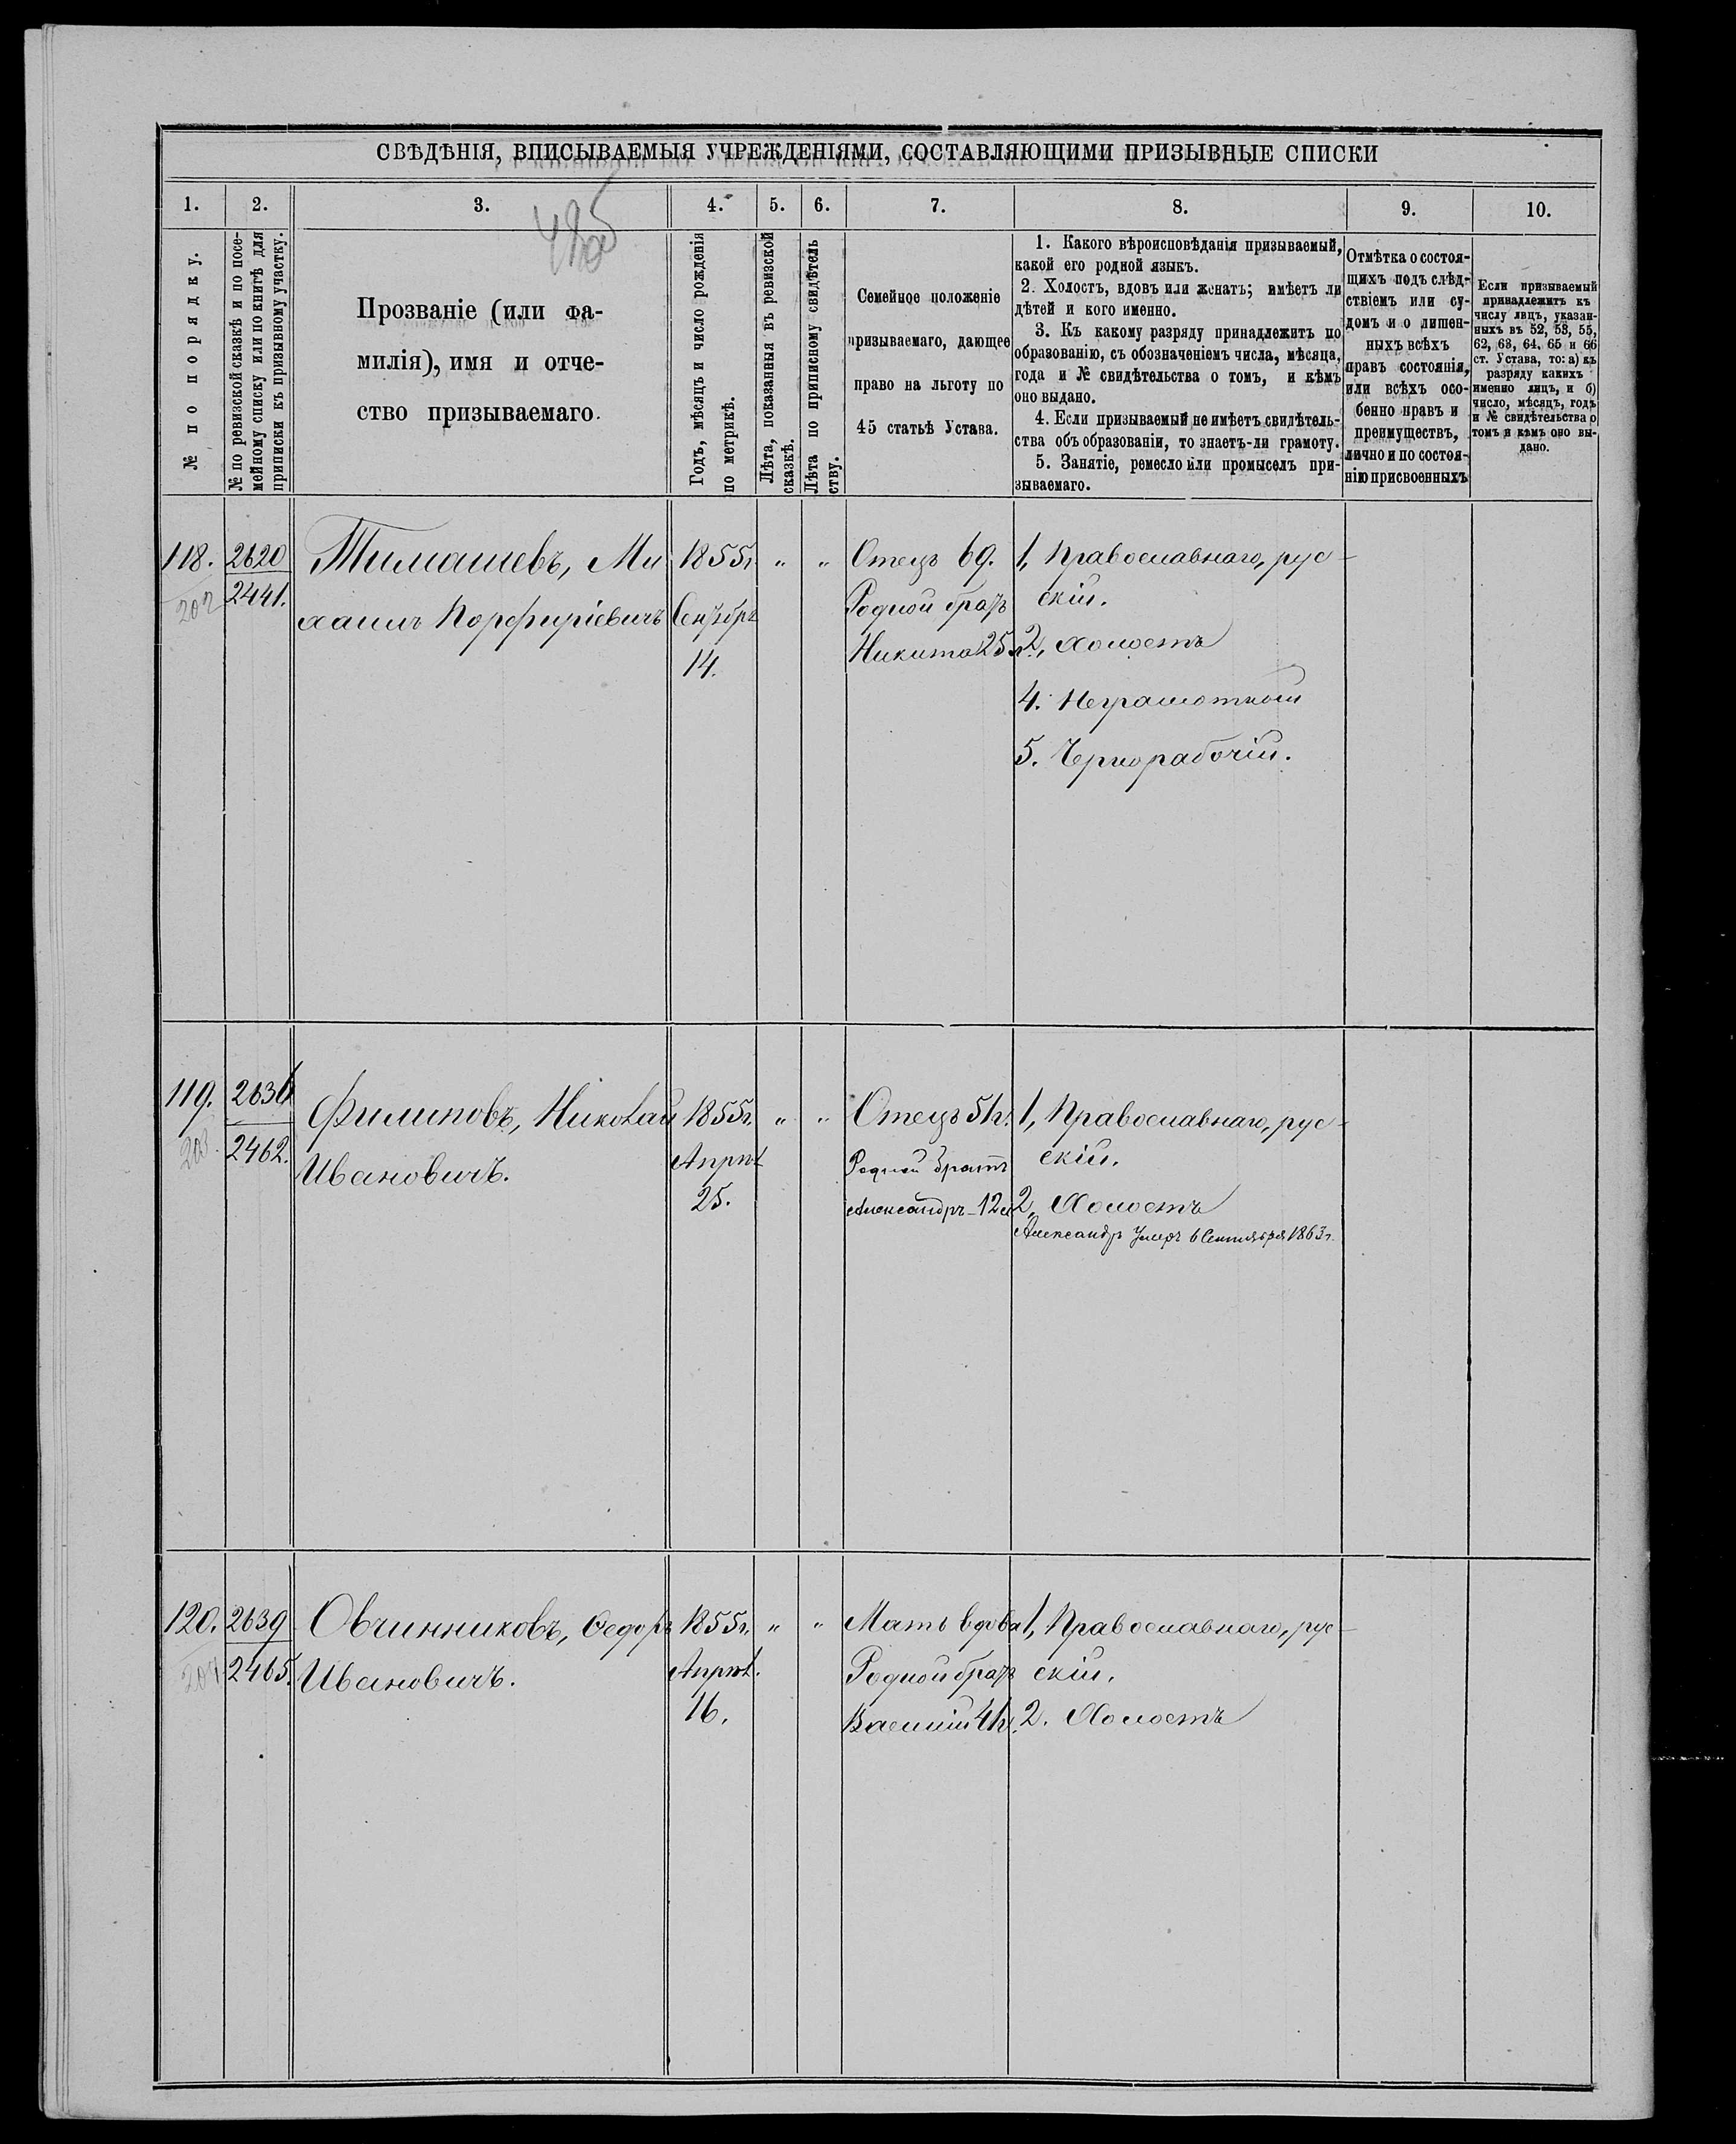 СВѢДѢНІЯ, ВПИСЫВАЕМЫЯ УЧРЕЖДЕНІЯМИ, СОСТАВЛЯЮЩИМИ ПРИЗЫВНЫЕ СПИСКИ
1. 2. 3. 4. 5. 6. 7. 8. 9. 10.
№ по порядку.
№ по ревизской сказкѣ и по посе-
мейному списку или по книгѣ для
приписки къ призывному участку.
Прозваніе (или фа-
милія), имя и отче-
ство призываемаго.
Годъ, мѣсяцъ и число рожденія
по метрикѣ.
Лѣта, показанныя въ ревизской
сказкѣ.
Лѣта по приписному свидѣтель
ству.
Семейное положеніе
призываемаго, дающее
право на льготу по
45 статьѣ Устава.
1. Какого вѣроисповѣданія призываемый,
какой его родной языкъ.
2. Холостъ, вдовъ или женатъ; имѣетъ ли
дѣтей и кого именно.
3. Къ какому разряду принадлежитъ по
образованію, съ обозначеніемъ числа, мѣсяца,
года и № свидѣтельства о томъ, и кѣмъ
оно выдано.
4. Если призываемый не имѣетъ свидѣтель-
ства объ образованіи, то знаетъ-ли грамоту.
5. Занятіе, ремесло или промыселъ при-
зываемаго.
Отмѣтка о состоя-
щихъ подъ слѣд-
ствіемъ или су-
домъ и о лишен-
ныхъ всѣхъ
правъ состоянія,
или всѣхъ осо-
бенно правъ и
преимуществъ,
лично и по состоя-
нію присвоенныхъ
Если призываемый
принадлежитъ къ
числу лицъ, указан-
ныхъ въ 52, 53, 55,
62, 63, 64, 65 и 66
ст. Устава, то: а) къ
разряду какихъ
именно лицъ, и б)
число, мѣсяцъ, годъ
и № свидѣтельства о
томъ и кѣмъ оно вы-
дано.
118. 2620 Тимашевъ, Ми 1855г. " " Отецъ 69. 1, Православнаго, рус-
202 2441. хаилъ Порфиріевичъ Сентябръ Родной братъ скій.
14. Никита 25 л. 2, Холостъ
4. Неграмотный
5. Чернорабочій.
119. 2636 Филиповъ, Николай 1855г. " " Отецъ 51г. 1, Православнаго, рус-
203. 2462. Ивановичъ. Апрѣл Родной братъ скій.
25. Александръ-12 л 2, Холостъ
Александръ Умеръ 6 Сентября 1863г.
120. 2639 Овчинниковъ, Ѳедоръ 1855г. " " Мать вдова 1, Православнаго, рус-
204 2465. Ивановичъ. Апрѣл. Родной братъ скій.
16. Василій 41г. 2. Холостъ